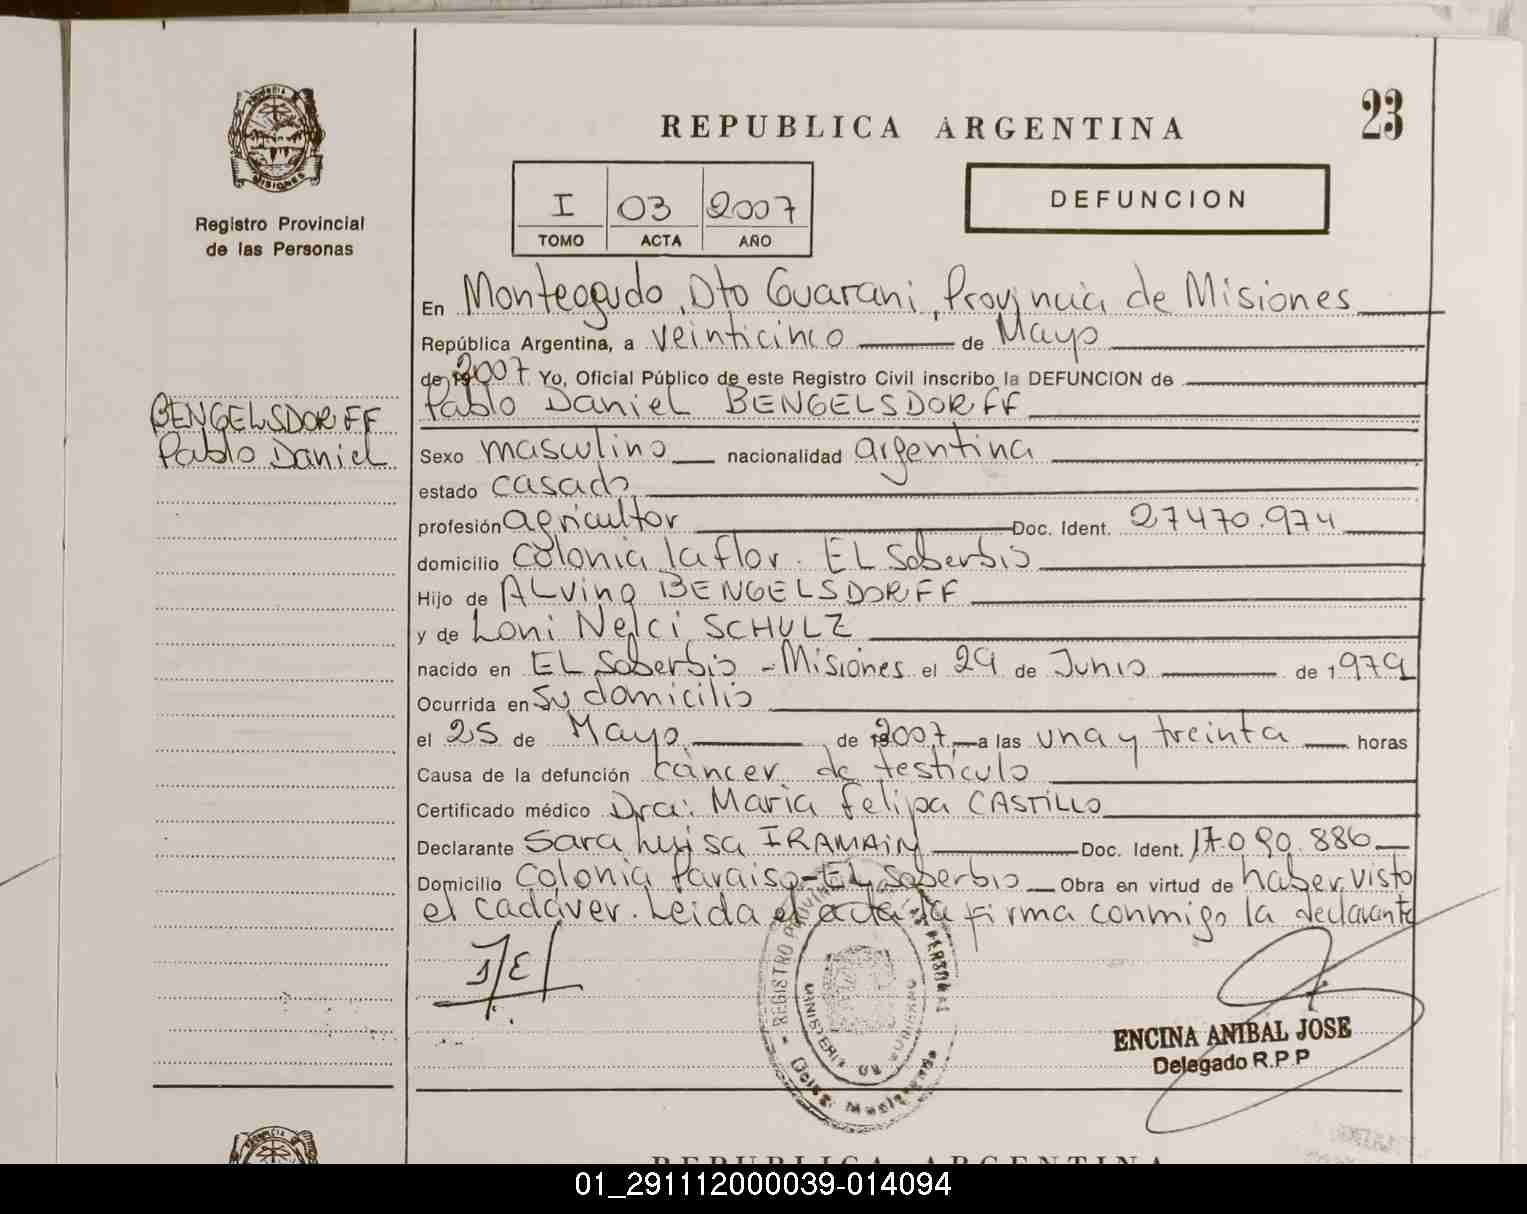 23
REPUBLICA ARGENTINA
DEFUNCION
I 03 2007
TOMO ACTA AÑO
PROVINCIA DE
MISIONES
Registro Provincial
de las Personas
BENGELSDORFF
Pablo Daniel
En Monteagudo, Dto Guarani, Provincia de Misiones
República Argentina, a veinticinco de Mayo
de 2007. Yo, Oficial Público de este Registro Civil inscribo la DEFUNCION de
Pablo Daniel BENGELSDORFF
Sexo masculino nacionalidad argentina
estado casado
profesión agricultor Doc. Ident. 27470.974
domicilio Colonia la flor. EL Soberbio
Hijo de ALvino BENGELSDORFF
y de Loni Nelci SCHULZ
nacido en EL Soberbio - Misiones el 29 de Junio de 1979
Ocurrida en su domicilio
el 25 de Mayo de 2007, a las una y treinta horas
Causa de la defunción cáncer de testículo
Certificado médico Dra: Maria felipa CASTILLO
Declarante Sara Luisa IRAMAIN Doc. Ident. 17.090.886
Domicilio Colonia Paraiso-EL Soberbio Obra en virtud de haber visto
el cadáver. Leida el acta la firma conmigo la declarante
REGISTRO PROVINCIAL DE LAS PERSONAS
MINISTERIO DE GOBIERNO
Deleg. Monteagudo
ENCINA ANIBAL JOSE
Delegado R.P.P
REPUBLICA ARGENTINA
01_291112000039-014094